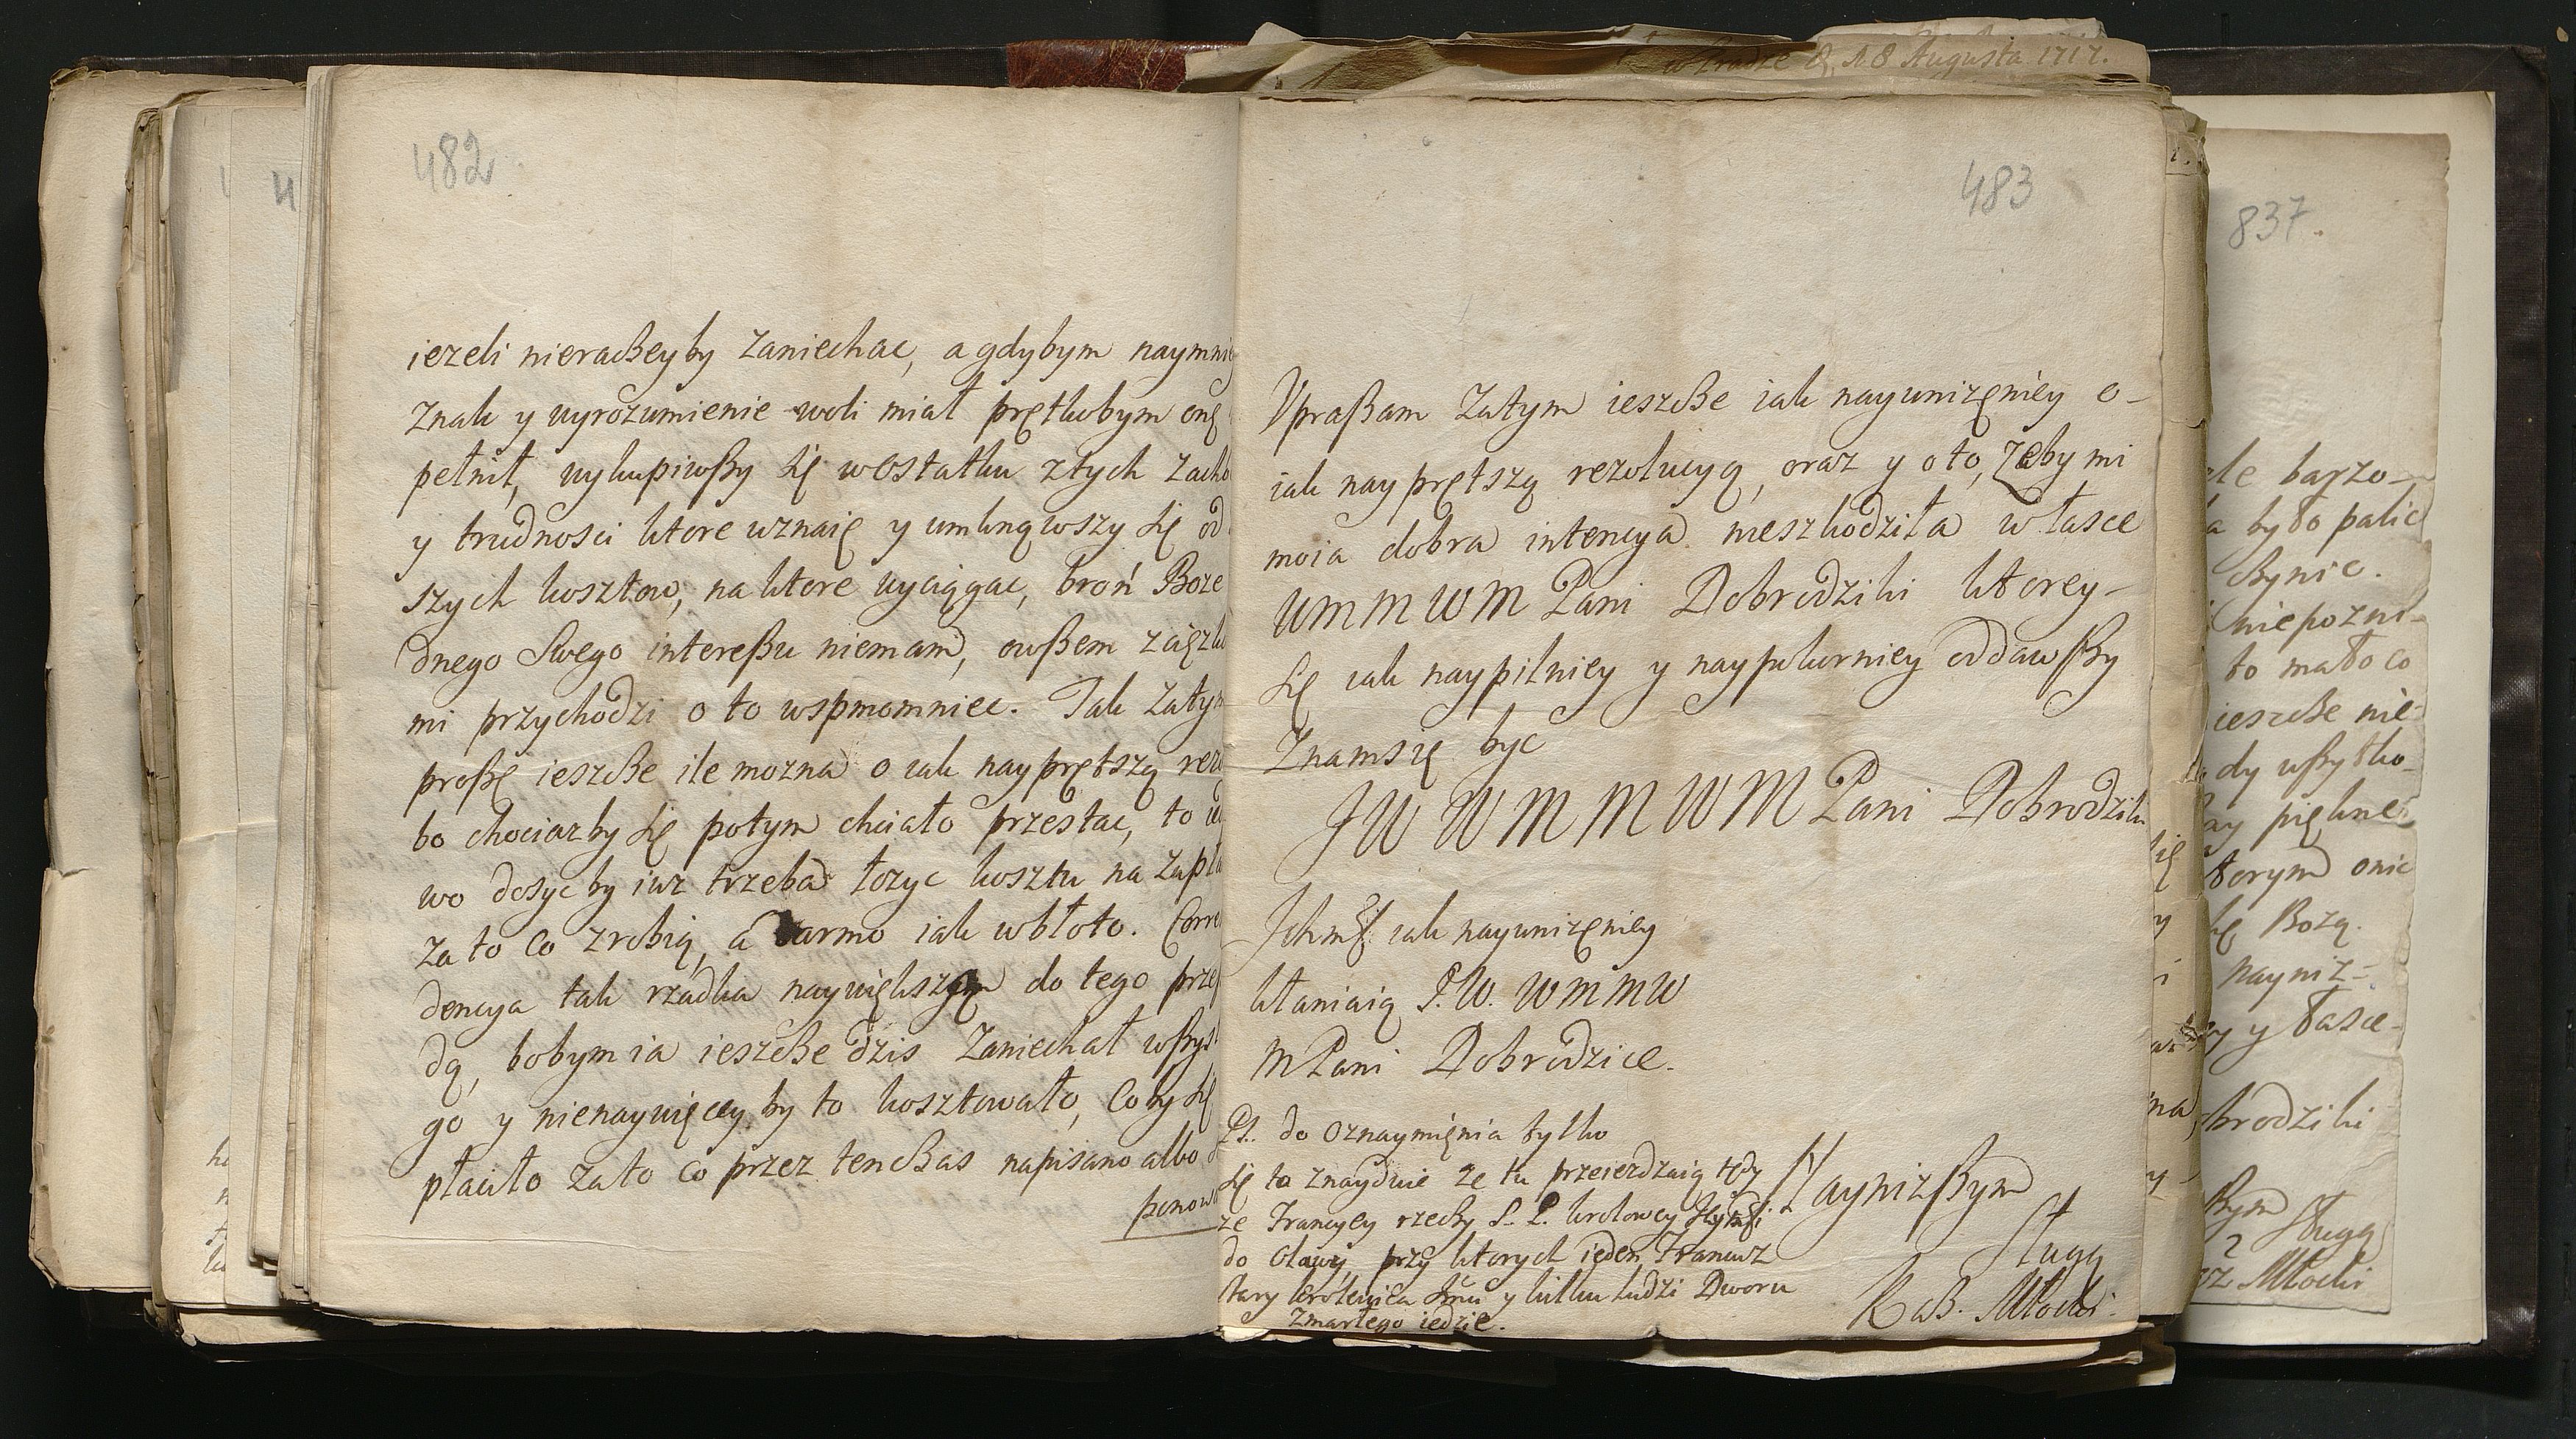 w Pradze D. 18 Augusta 1717.
482
ieżeli nieraczeyby zaniechac, a gdybym naymnie
znak y wyrozumienie woli miał prętkobym onę
pełnił, wykupiwszy się wostatku złych zacho
y trudnosci ktore uznaię y umknąwszy się od
szych kosztow, na ktore wyciągac, broń Boze
dnego Swego interessu niemam, owszem zcięzk
mi przychodzi o to wspmomniec. Tak zatym
proszę ieszcze ile mozna o iak nayprętszą rezo
bo chociazby się potym chciało przestac, to
wo dosyc by iuz trzeba łozyc kosztu na zapła
za to co zrobią, a darmo iak wbłoto. Corre
dencya tak rzadka naywiększą do tego prze
dą, bobym ia ieszcze dzis zaniechał wszys
go y nienaywięcey by to kosztowało, coby się
płaciło zato co przez tenczas napisano albo
ponow
483
Upraszam zatym ieszcze iak nayunizęniey o-
iak nayprętszą rezolucyą, oraz y oto, zeby mi
moia dobra intencya nieszkodziła w łasce
WMMWM Pani Dobrodziki ktorey-
się iak naypilniey y naypokorniey oddawszy
Znamsię byc
JW WMMWM Pani Dobrodziki
Ichmść iak nayunizęniey
kłaniaią J.W. WMMW
MPani Dobrodzice.
Ps. do oznaymięnia tylko
się to znayduie ze tu przeiezdzaią tędy
ze Francyey rzeczy S. P. krolowey Jeymści
do Oławy, przy ktorych ieden Francuz
stary krolewica Jmci y kilku ludzi Dworu
Zmarłego iedzie.
Naynizszym
Sługą
Kasz. Młocki
837.
ale barzo-
a było palic
czynic.
niepozni-
to mało co
ieszcze nie-
dy wszytko-
ny piękne-
ktorym onic
kę Bozą.
nayniz-
y łasce-
brodziki
szym
Sługą
sz Młocki